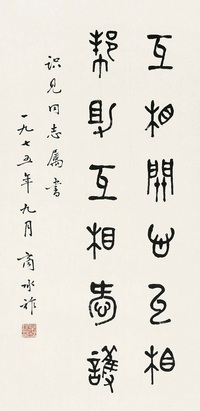 互相關心互相
幫助互相愛護
识见同志属書
一九七五年九月 商承祚